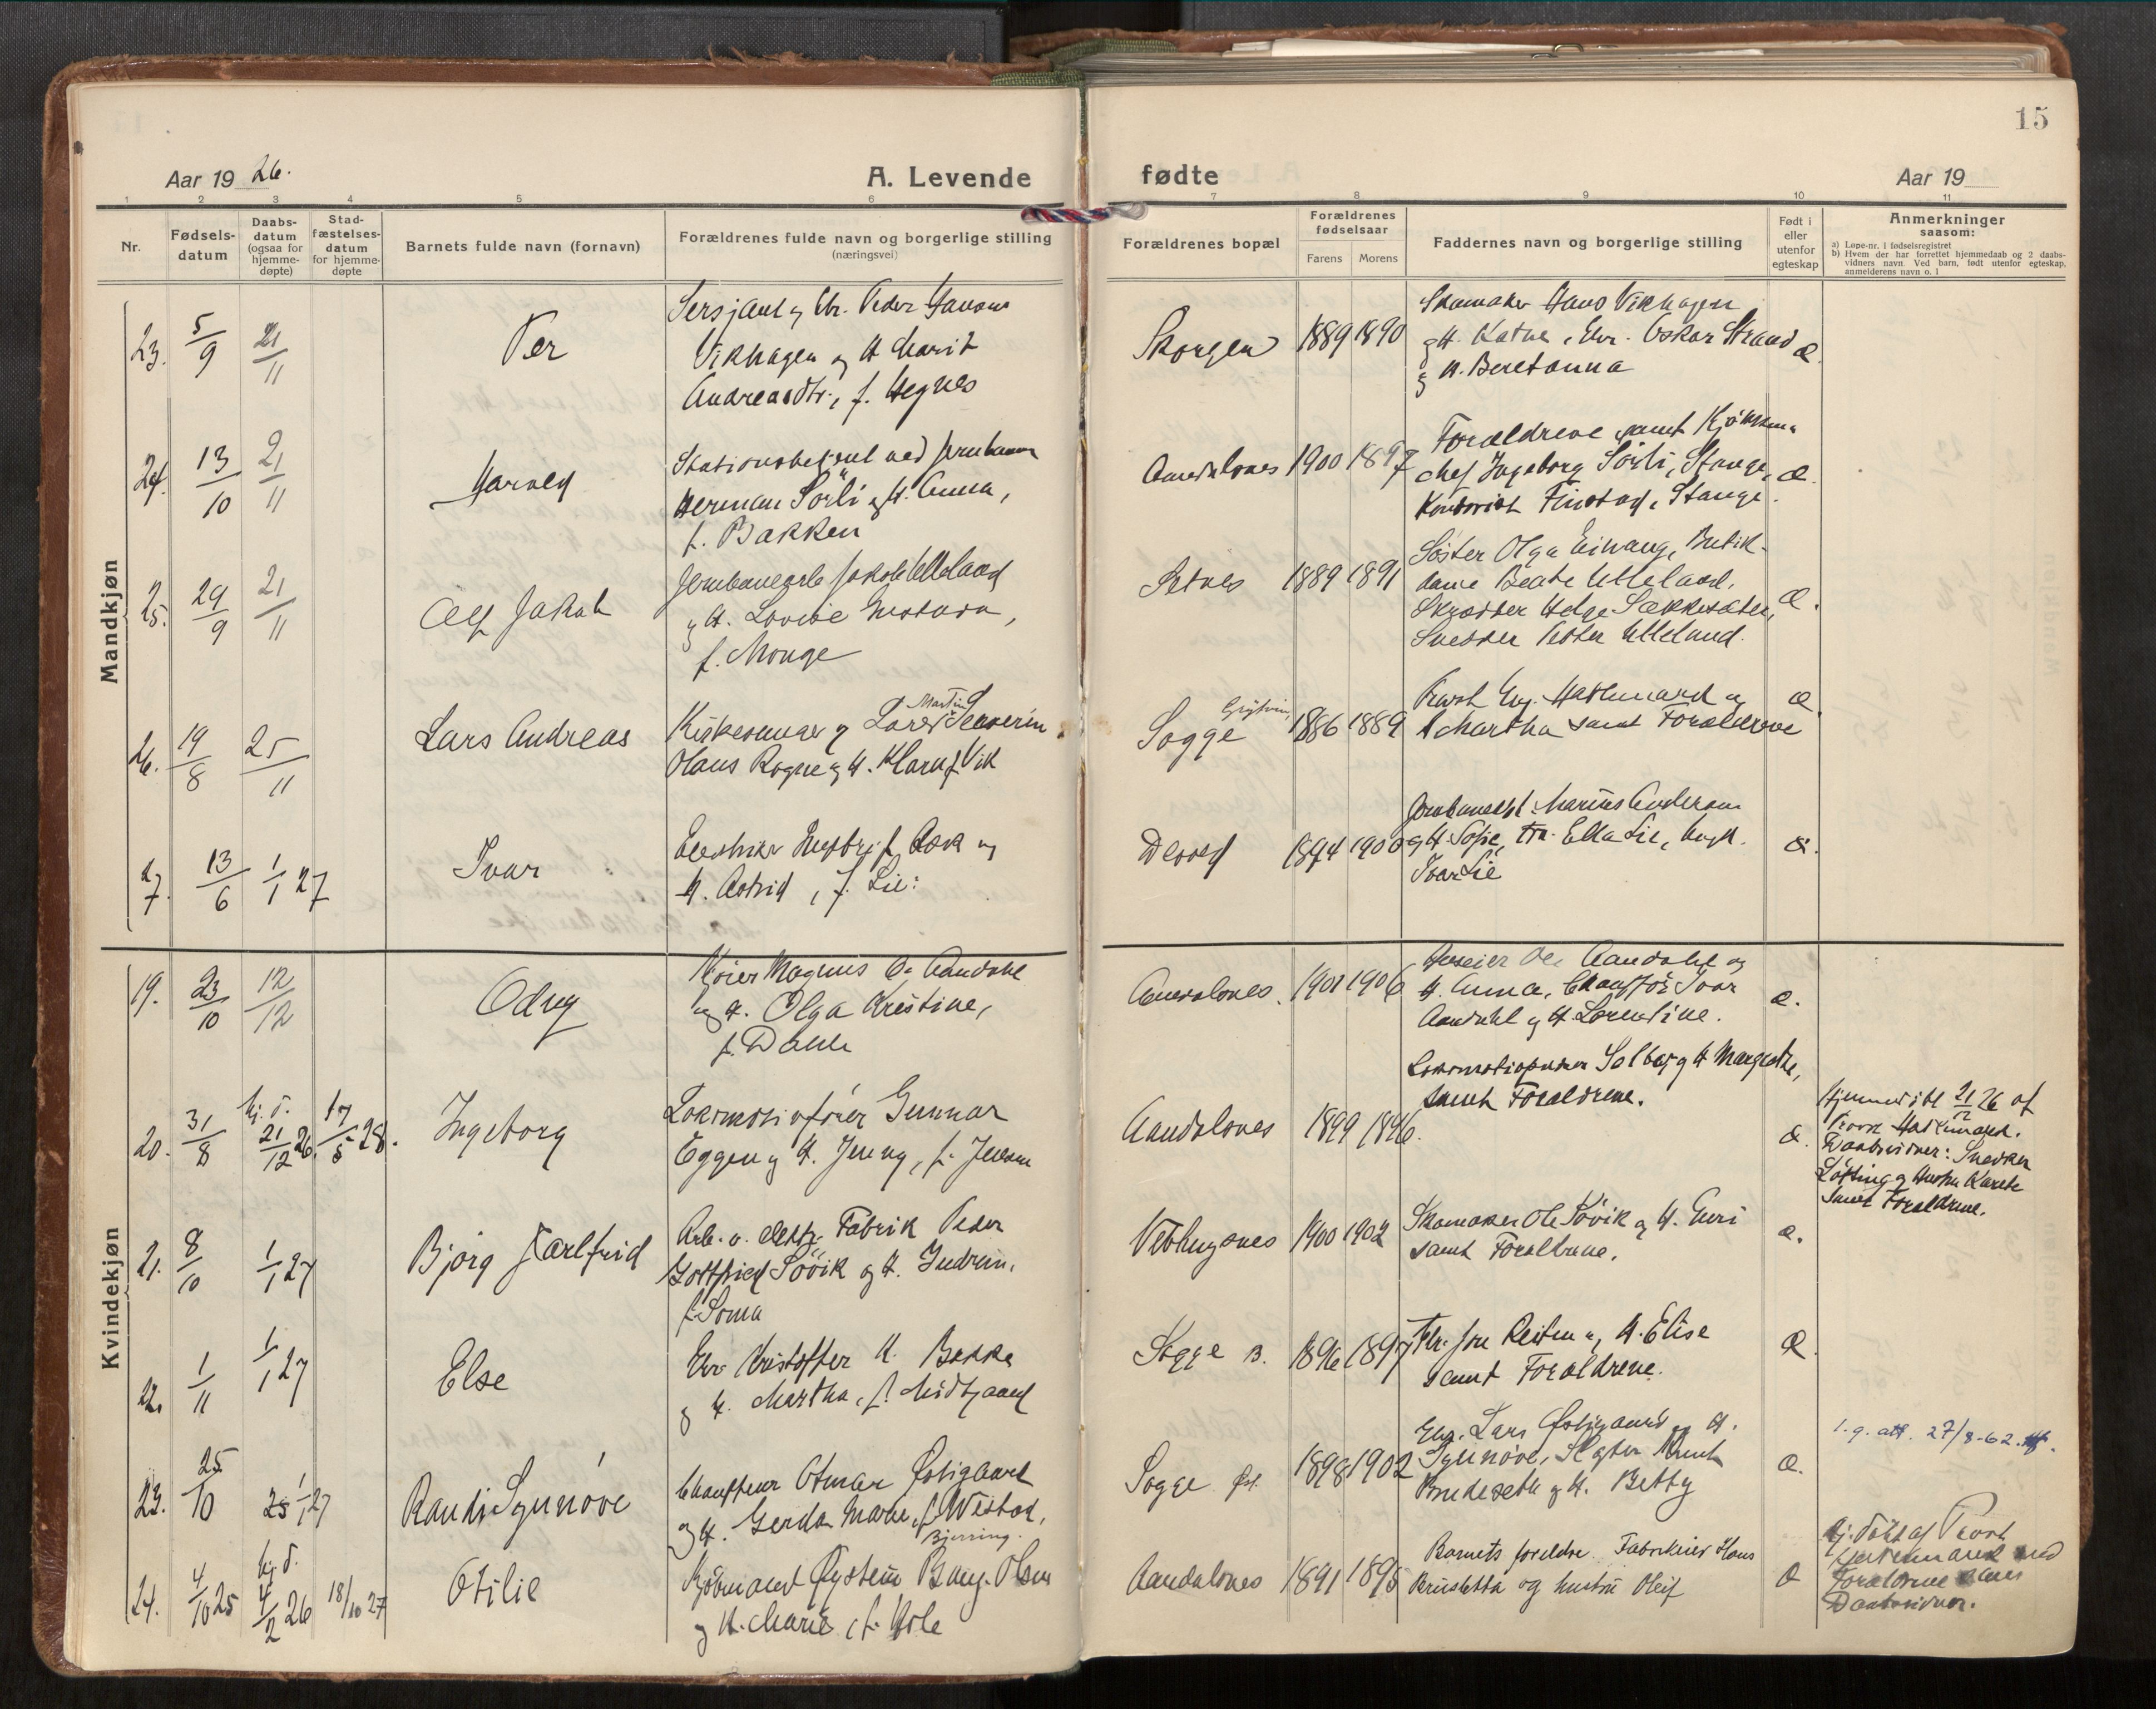 15
Aar 1926.
A. Levende
fødte
Aar 19
1 2 3 4 5 6 7 8 9 10 11
Nr.
Fødsels-
datum
Daabs-
datum
(ogsaa for
hjemme-
døpte)
Stad-
fæstelses-
datum
for hjemme-
døpte
Barnets fulde navn (fornavn)
Forældrenes fulde navn og borgerlige stilling
(næringsvei)
Forældrenes bopæl
Forældrenes
fødselsaar
Farens Morens
Faddernes navn og borgerlige stilling
Født i
eller
utenfor
egteskap
Anmerkninger
saasom:
a) Løpe-nr. i fødselsregistret
b) Hvem der har forrettet hjemmedaab og 2 daabs-
vidners navn. Ved barn, født utenfor egteskap,
anmelderens navn o. l
Mandkjøn
23. 5/9 21/11
Per
Sersjant og Peder
Vikhagen og H. Marit
Andreasdtr., f. Hegnes
Skorgen 1889 1890
Skomaker Hans Vikhagen
og H. , Gbr. Oskar Strand
og H. Beretanna
Æ.
24. 13/10 21/11
Harald
ved Jernbanen
Herman Sörli og H. Anna,
f. Bakken
Aandalsnes 1900 1897
Forældrene samt
Ingeborg Sörli, Stange,
Kontorist Finstad, Stange.
Æ.
25. 29/9 21/11
Alf Jakob
Jakob Ulleland
og H. Lovise
f. Monge
Setnes 1889 1891
Söster Olga , Butik-
dame Beate Ulleland,
Skrædder Helge ,
Snedker Peder Ulleland.
Æ.
26. 19/8 25/11
Lars Andreas
Kirkesanger Martin
Lars Severin
Olaus Rogne og H. Klara f. Vik
Grytten
Sogge 1886 1889
Provst og
Martha samt Forældrene
Æ.
27. 13/6 1/1 27
Ivar
Ask og
H. Astrid, f. Lie.
Devold 1894 1900
Marius Andersen
og H. Sofie, Frk. Ella Lie,
Ivar Lie
Æ.
Kvindekjøn
19. 23/10 12/12
Odny
Magnus O. Aandahl
og H. Olga Kristine,
f. Dahle
Aandalsnes. 1901 1906
Ole Aandahl og
H. Anna, Chaufför Ivar
Aandahl og H. Lorentine.
Æ.
20. 31/8 hj. d. 21/12 26. 17/5 28.
Ingeborg
Lokomotivfører Gunnar
Eggen og H. Jenny, f. Jensen
Aandalsnes 1899 1896.
Solberg og H. Margrethe,
samt Forældrene.
Æ.
Hjemmedöbt 21/12 26 af
Provst
Daabsvidner: Snedker
Löfting og Hustru Karete
samt Forældrene.
21. 8/10 1/1 27
Bjørg Jarlfrid
Arb. v. elektr. Fabrik Peder
Gottfried Sövik og H. Gudrun,
f. Soma
Veblungsnes 1900 1902
Skomaker Ole Sövik og H. Guri
samt Forældrene.
Æ.
22. 1/11 1/1 27
Else
Gbr. Kristoffer K. Bakke
og H. Martha, f. Midtgaard
Sogge B. 1896 1897
Jon Reiten og H. Elise
samt Forældrene.
Æ.
23. 25/10 1/1 27
Randi Synnöve
Chauffeur Otmar Østigaard
og H. Gerda Marie, f. Westad,
Bjerring.
Sogge Øst. 1898 1902
Gbr. Lars Østigaard og H.
Synnöve, Knut
Brudeseth og H. Betty
Æ.
1. g. att. 27/8-62.
24. 4/10 25 hj. d. 4/2 26 18/10 27
Otilie
Kjöbmand Øystein Bang-Olsen
og H. Marie, f. Hole
Aandalsnes 1891 1895
Barnets foreldre Fabrikeier Hans
Brusletta og hustru Oleif
Æ
hj. döbt af Provst
med
Forældrene som
Daabsvidner.